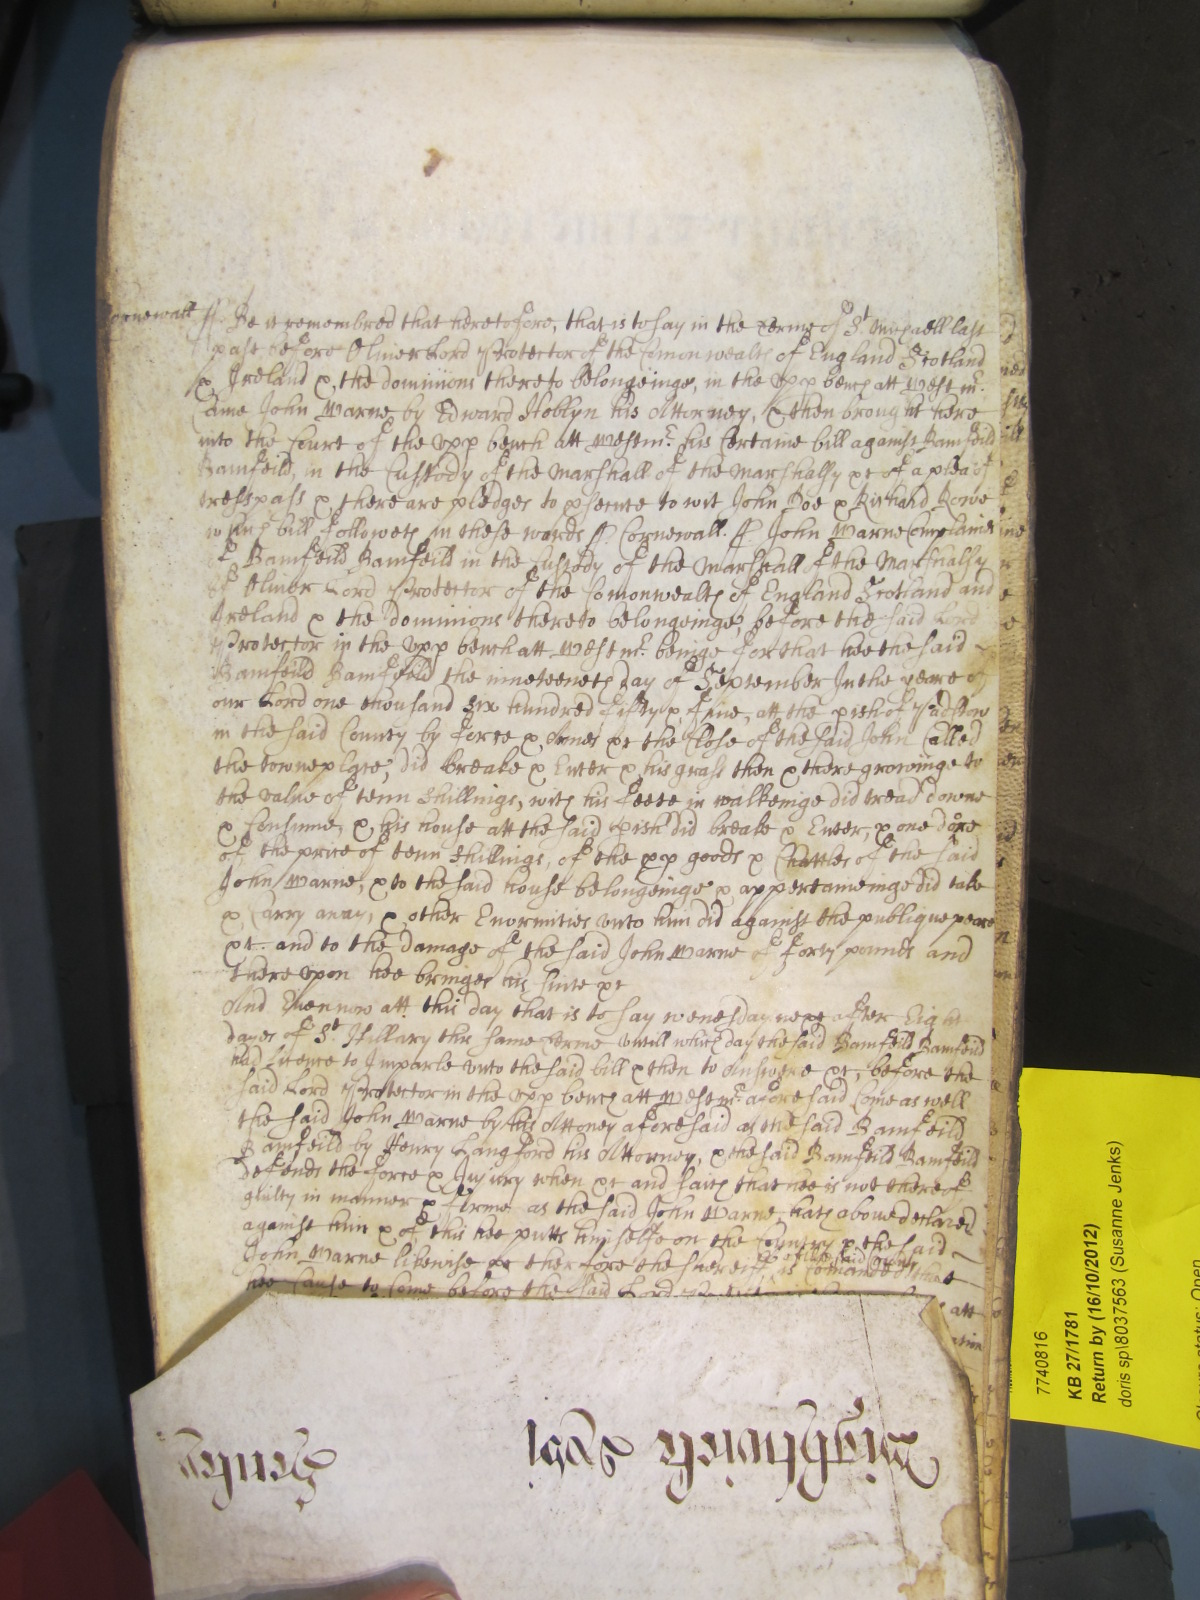 Cornewall ss. Be it remembred that heretofore, that is to say in the Terme of St Michaell last
past before Oliver Lord Protector of the Comonwealth of England Scotland
& Ireland & the dominions thereto belongeinge, in the upp bench att Westmr.
Came John Warne by Edward Hoblyn his Attorney, & then brought here
into the Court of the upp bench att Westmr. his Certaine bill against Bamfeild
Bamfeild, in the Custody of the Marshall of the Marshalsy &c of a plea of
tresspass & there are pledges to psecute to wit John Doe & Richard Rowe
which bill followeth in these words ss. Cornewall. ss John Warne Complaines
of Bamfeild Bamfeild in the Custody of the Marshall of the Marshalsy
of Oliver Lord Protector of the Comonwealth of England Scotland and
Ireland & the dominions thereto belongeinge, before the said Lord
Protector in the upp bench att Westmr. beinge for that hee the said
Bamfeild Bamfeild the nineteenth day of September In the yeare of
our Lord one thousand Six hundred fifty & five, att the pish of Padstow
in the said County by force & Armes &c the Close of the said John Called
the towneplace, did breake & Enter & his grass then & there growinge to
the value of tenn Shillings, with his feete in walkeinge did tread downe
& Consume, & his house att the said pish did breake & Enter, & one dore
of the price of tenn shillings, of the pp goods & Chattles of the said
John Warne, & to the said house belongeinge & apperteineinge did take
& Carry away, & other Enormities unto him did against the publique peace
&c. and to the damage of the said John Warne of forty pounds and
there upon hee bringes his suite &c
And Nowe att this day that is to say wenesday next after Eight
dayes of St Hillary this same Terme untill which day the said Bamfeild Bamfeild
had Licence to Imparle unto the said bill & then to Answere &c, before the
said Lord Protector in the upp bench att Westmr. aforesaid Come as well
the said John Warne by his Attorney aforesaid as the said Bamfeild
Bamfeild by Henry Langford his Attorney, & the said Bamfeild Bamfeild
Defends the force & Injury when &c and saith that hee is not thereof
guilty in manner & forme as the said John Warne, hath above declared
against him & of this hee putts himselfe on the Country & the said
of the said County
John Warne likewise &c therefore the sheriff is Comanded that
hee Cause to Come before the said Lord
att
Nightwich Logi
7740816
KB 27/1781
Return by (16/10/2012)
doris sp\8037563 (Susanne Jenks)
status: Open